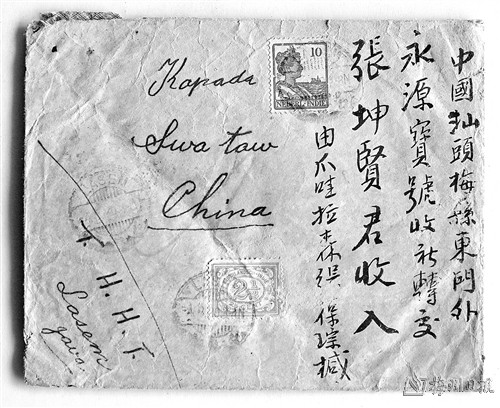 中國汕頭梅縣東門外
永源寶號收汝轉交
張坤賢君收入
由爪哇拉森埠保琮椷
Kapada
Swatow
China
10
NEDERL-INDIE
2½
T. H. H. T.
Lasem
Java
梅州日报